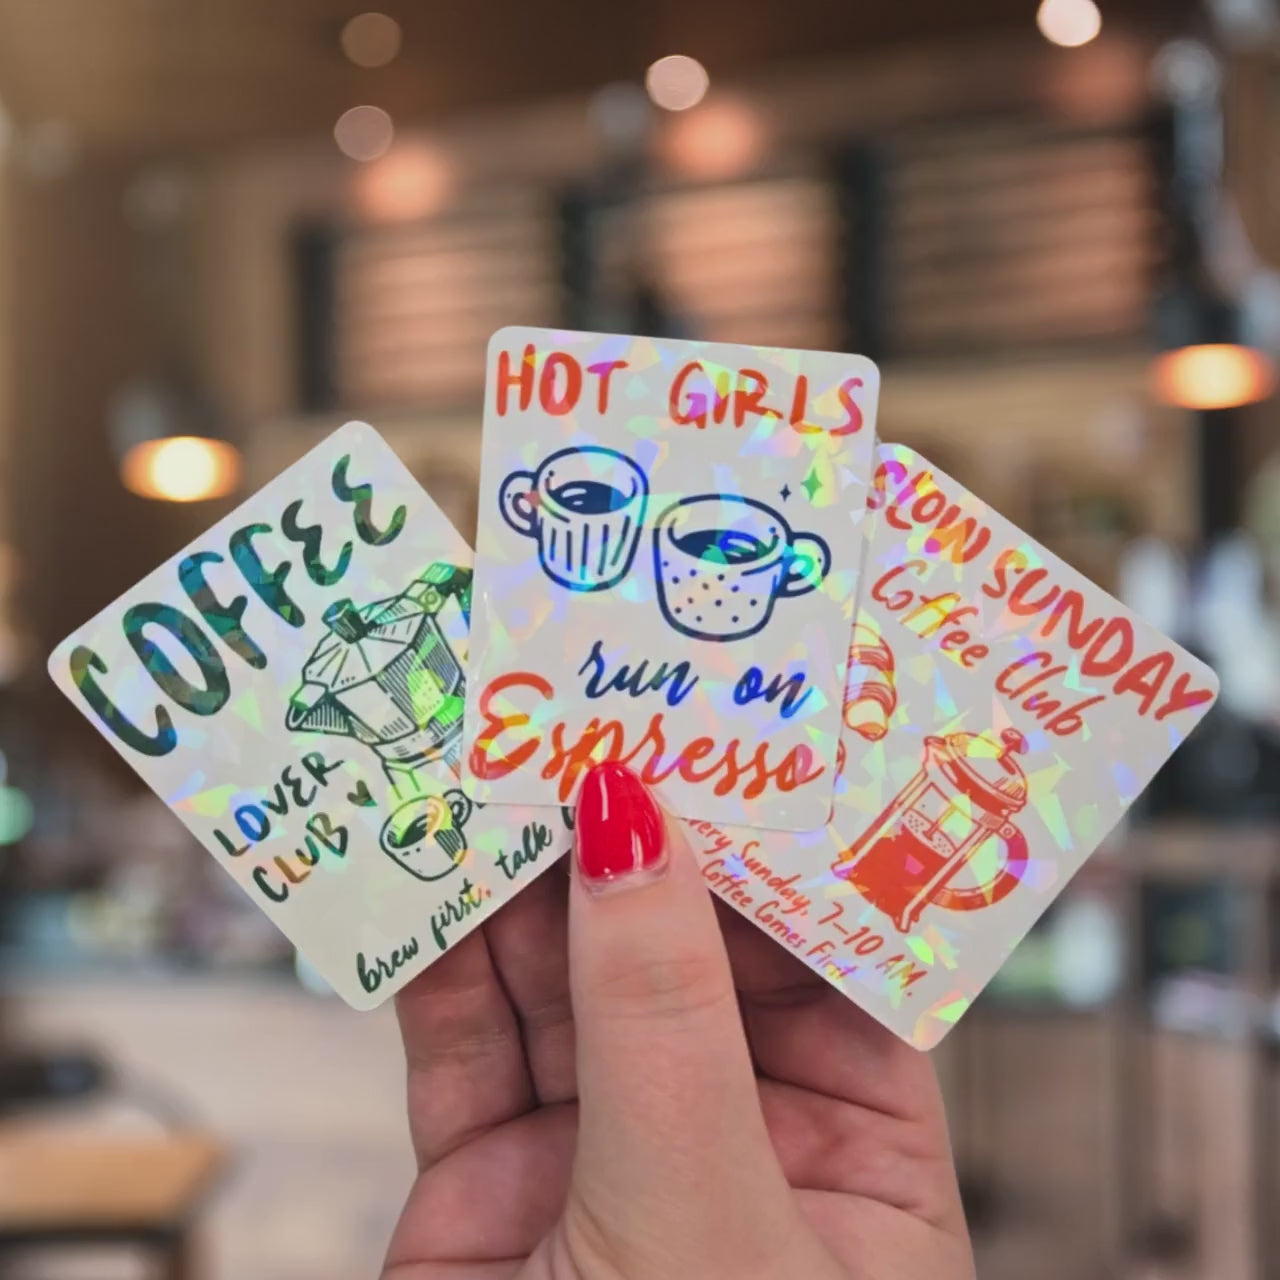 COFFEE
LOVER
CLUB
brew first, talk
HOT GIRLS
run on
Espresso
SLOW SUNDAY
Coffee Club
Sunday, 7-10 AM.
Coffee Comes First